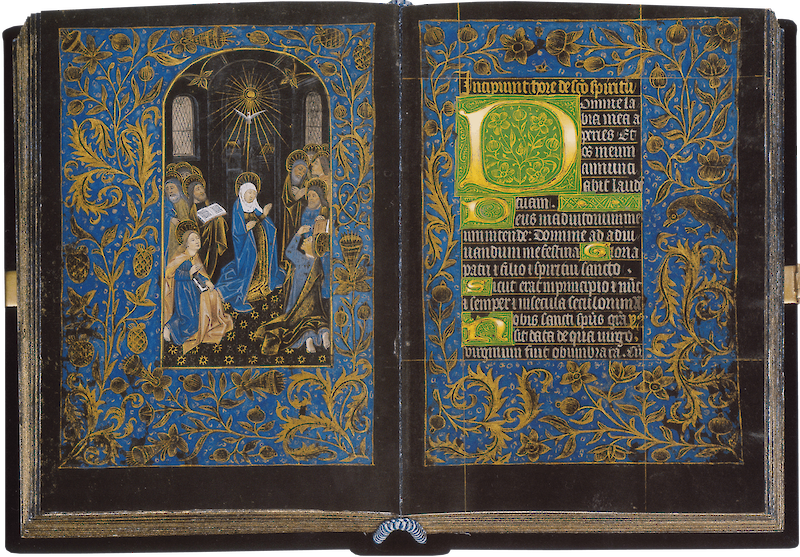 Incipiunt hore de sco spiritu
Domine la
bia mea a
peries Et
os meum
annunti
abit laude
tuam.
Deus in adiutorium me
um intende: Domine ad adiu
uandum me festina Gloria
patri ⁊ filio ⁊ spiritui sancto.
Sicut erat in principio ⁊ nuc
⁊ semper ⁊ in secula seculorum
Nobis sancti spus gra
sit data de qua uirgo
virginum fuit obumbrata.